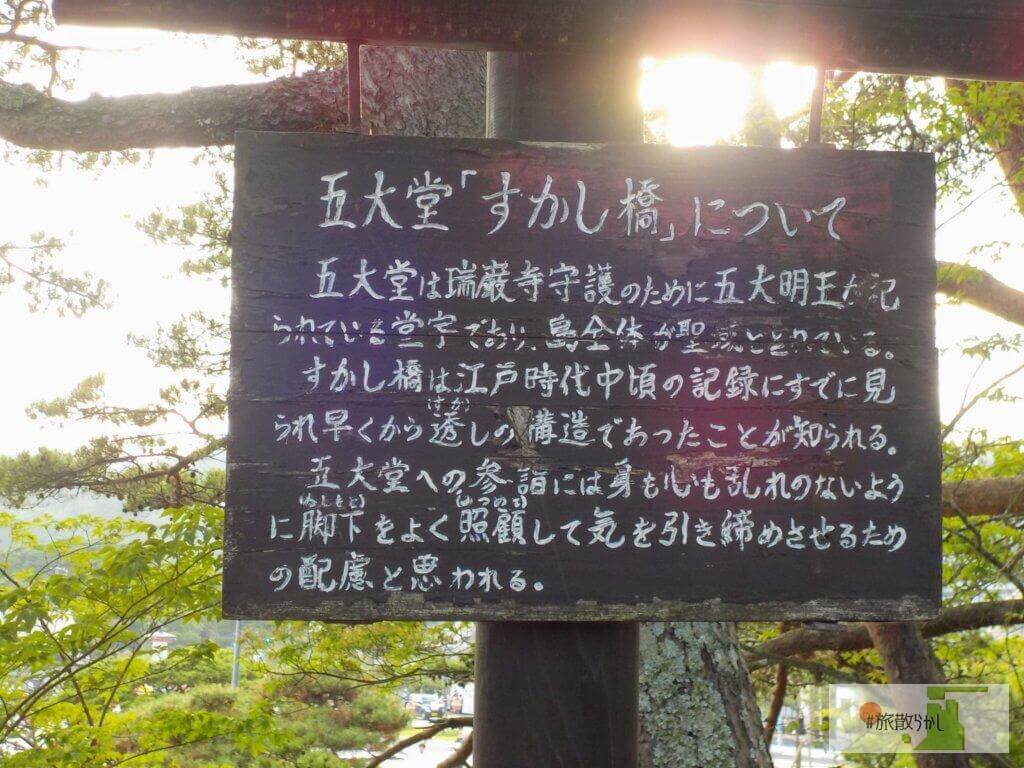 五大堂「すかし橋」について
五大堂は瑞巌寺守護のために五大明王が祀
られている堂宇であり、島全体が聖域とされている。
すかし橋は江戸時代中頃の記録にすでに見
すか
られ早くから透しの構造であったことが知られる。
五大堂への参詣には身も心も乱れのないよう
あしもと
に脚下をよく照顧して気を引き締めさせるため
の配慮と思われる。
#旅散らかし